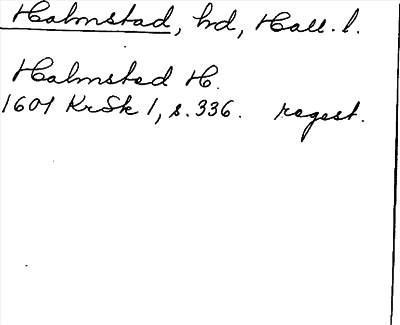 Halmstad, hd, Hall. l.
Halmsted H.
1601 KrSk 1, s. 336. regest.